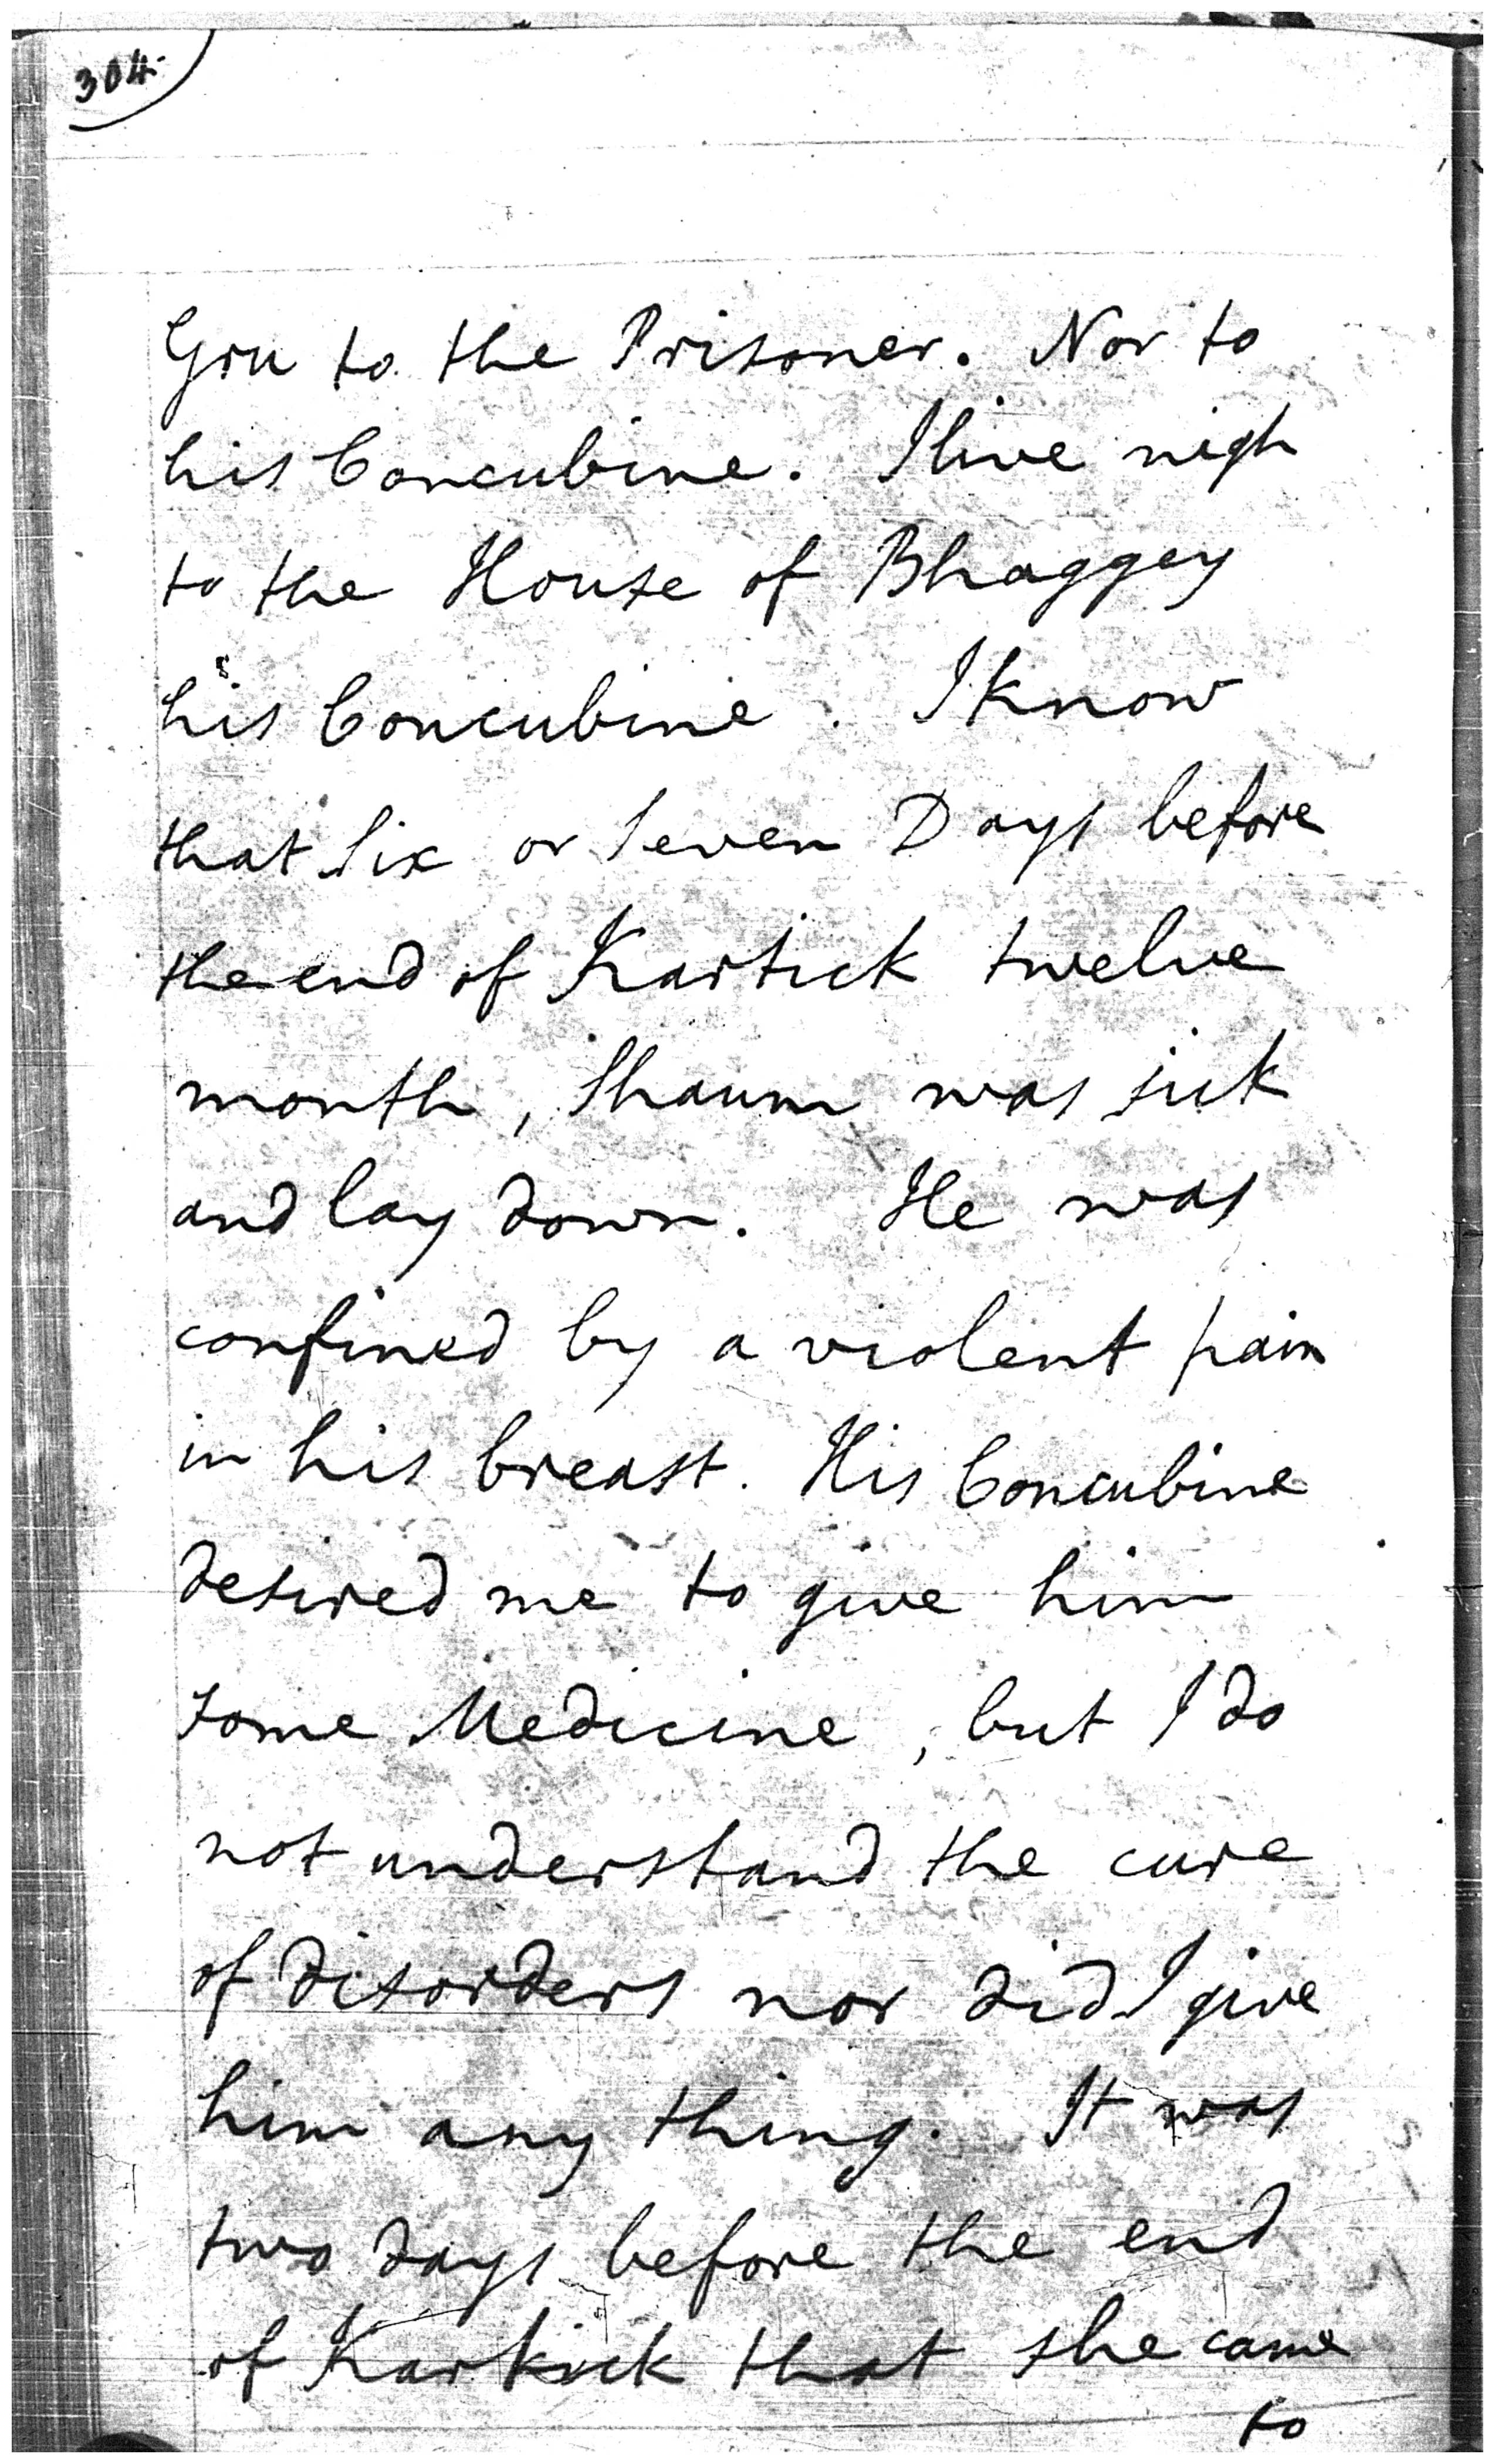 304
Gru to the Prisoner. Nor to
his Concubine. I live nigh
to the House of Bhaggey
his Concubine. I know
that Six or Seven Days before
the end of Kartick twelve
month, Shaum was sick
and lay down. He was
confined by a violent pain
in his breast. His Concubine
desired me to give him
some Medicine, but I do
not understand the cure
of disorders nor did I give
him any thing. It was
two days before the end
of Kartick that she came
to